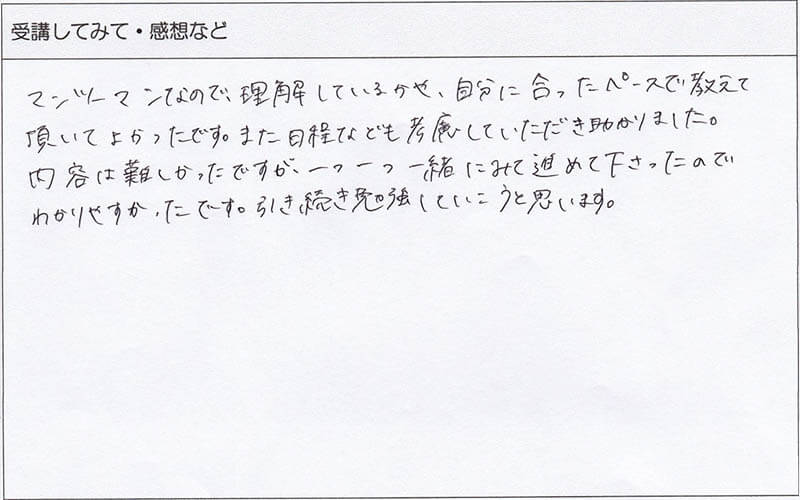 受講してみて・感想など
マンツーマンなので、理解しているかや、自分に合ったペースで教えて
頂いてよかったです。また日程なども考慮していただき助かりました。
内容は難しかったですが、一つ一つ一緒にみて進めて下さったので
わかりやすかったです。引き続き勉強していこうと思います。